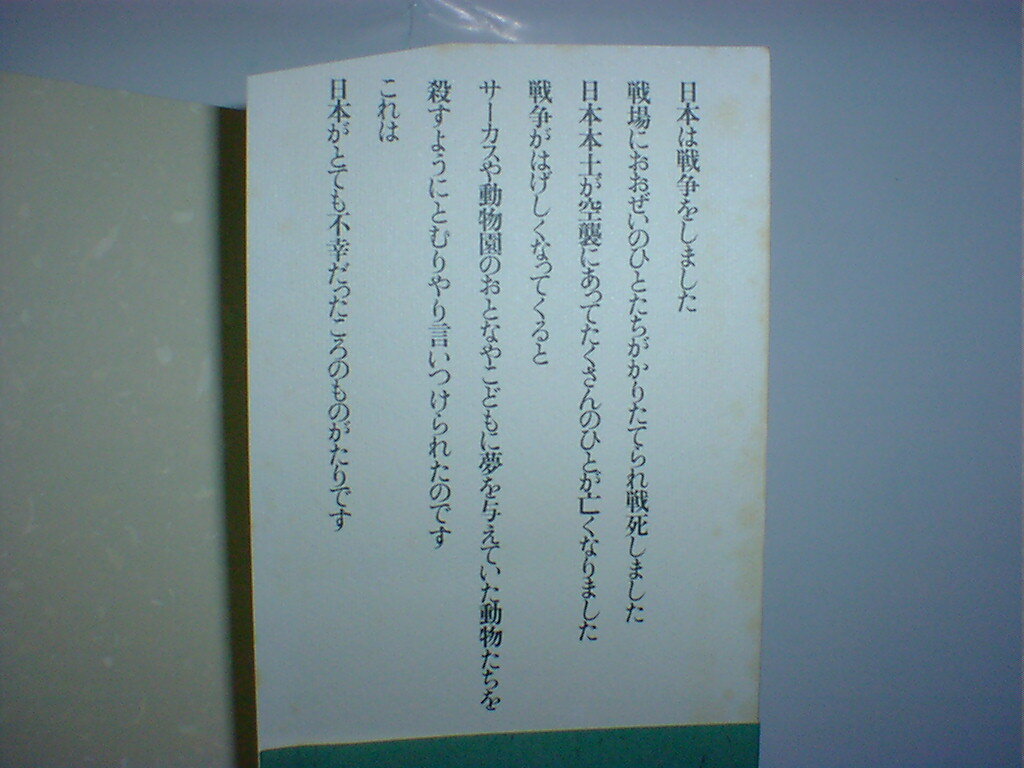 日本は戦争をしました
戦場におおぜいのひとたちがかりたてられ戦死しました
日本本土が空襲にあってたくさんのひとが亡くなりました
戦争がはげしくなってくると
サーカスや動物園のおとなやこどもに夢を与えていた動物たちを
殺すようにとむりやり言いつけられたのです
これは
日本がとても不幸だったころのものがたりです